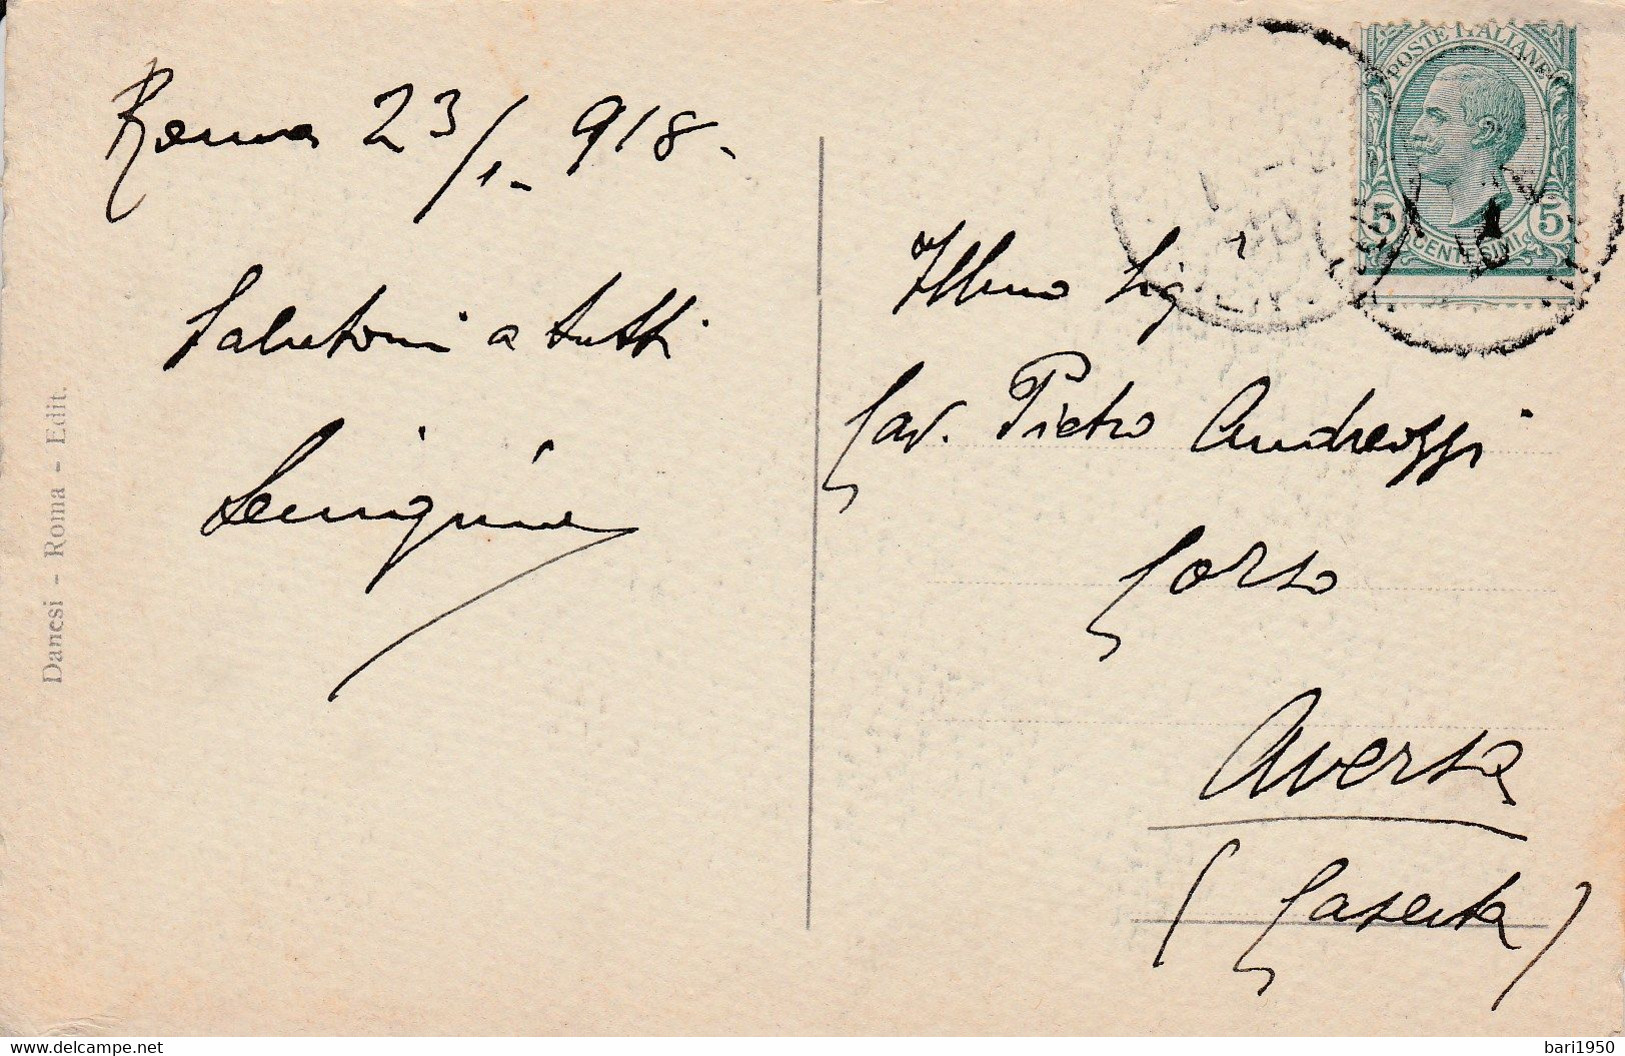 Roma 23/1. 918.
Salutoni a tutti
Danesi - Roma - Edit.
POSTE ITALIANE
5 5
CENTESIMI
Illmo Sigr
Cav. Pietro Andreozzi
Corso
Aversa
(Caserta)
www.delcampe.net
bari1950